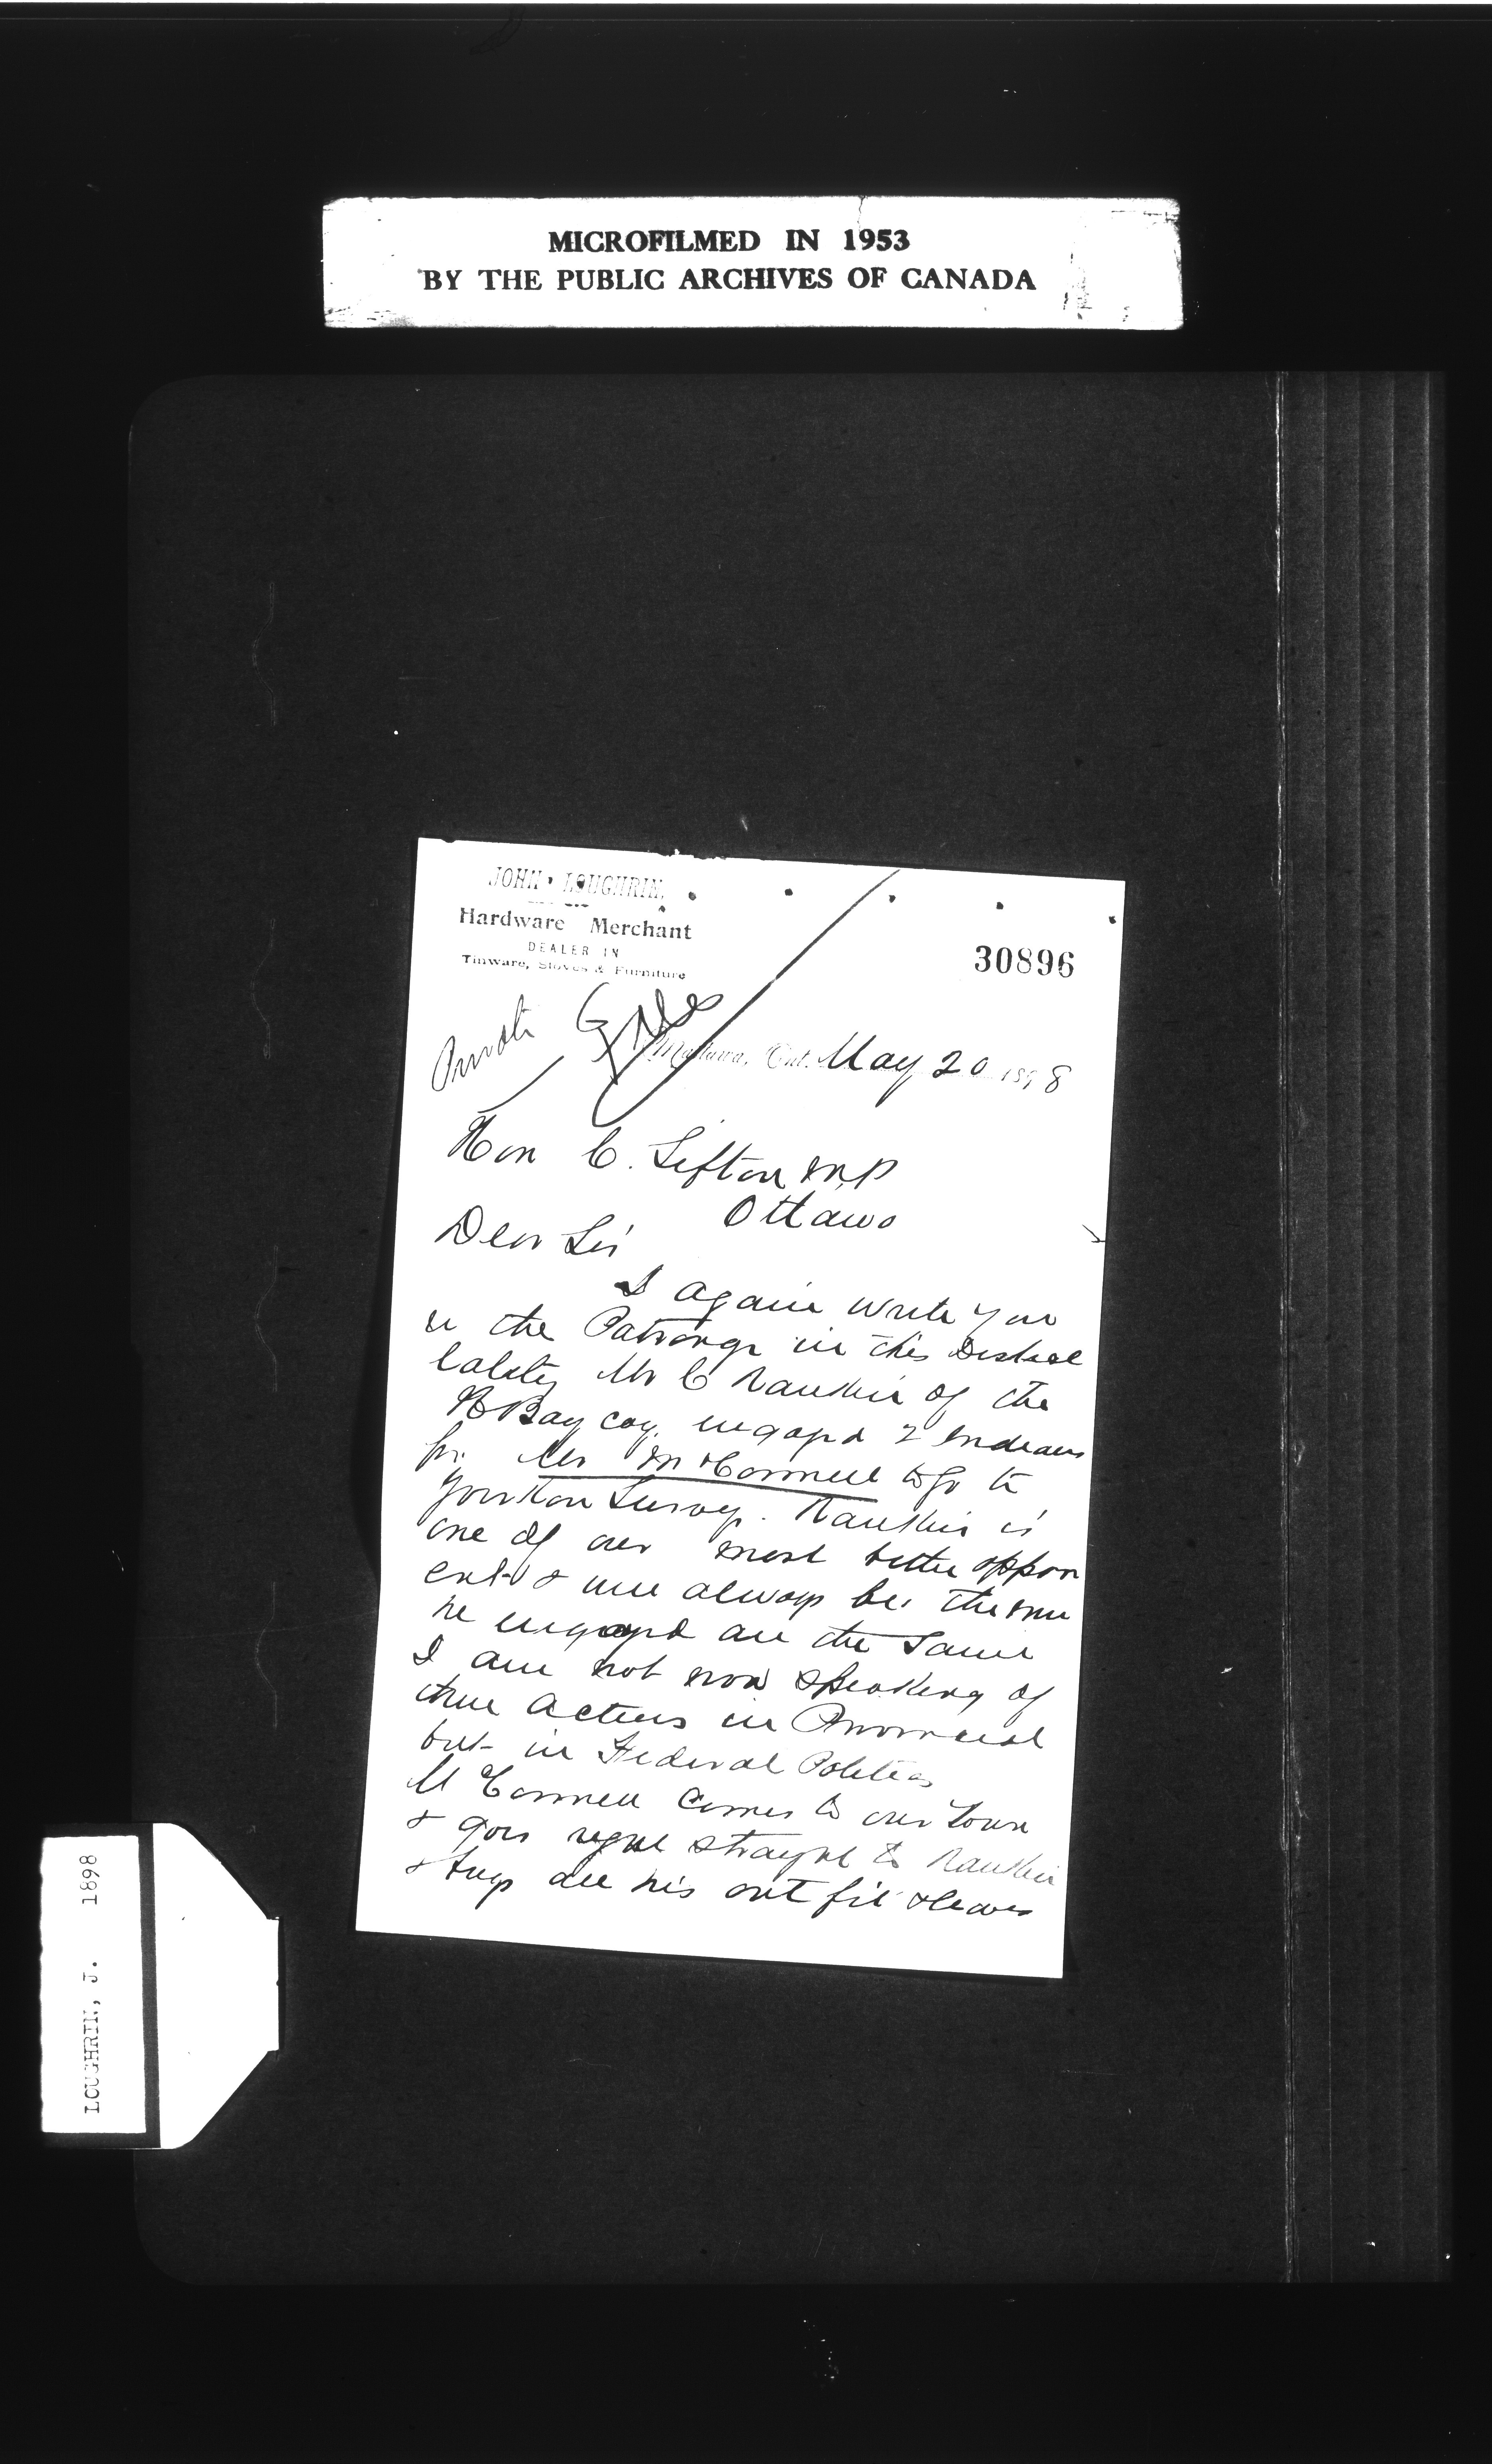 MICROFILMED IN 1953
BY THE PUBLIC ARCHIVES OF CANADA
JOHN LOUGHRIN,
Hardware Merchant
DEALER IN
Tinware, Stoves & Furniture
30896
Private
Mattawa, Ont. May 20 1898
Hon C. Sifton M.P
Ottawa
Dear Sir
I again write you
re the Patronage in this District
lately Mr C Rankin of the
H Bay coy. engaged 2 Indians
for Mr McConnell to go to
Survey. Rankin is
one of our most bitter oppon
ents & will always be. The men
he engaged are the same
I am not now speaking of
their actions in Provincial
but in Federal Politics
McConnell comes to our Town
& goes right straight to Rankin
& buys all his out fit & leaves
LOUGHRIN, J. 1898